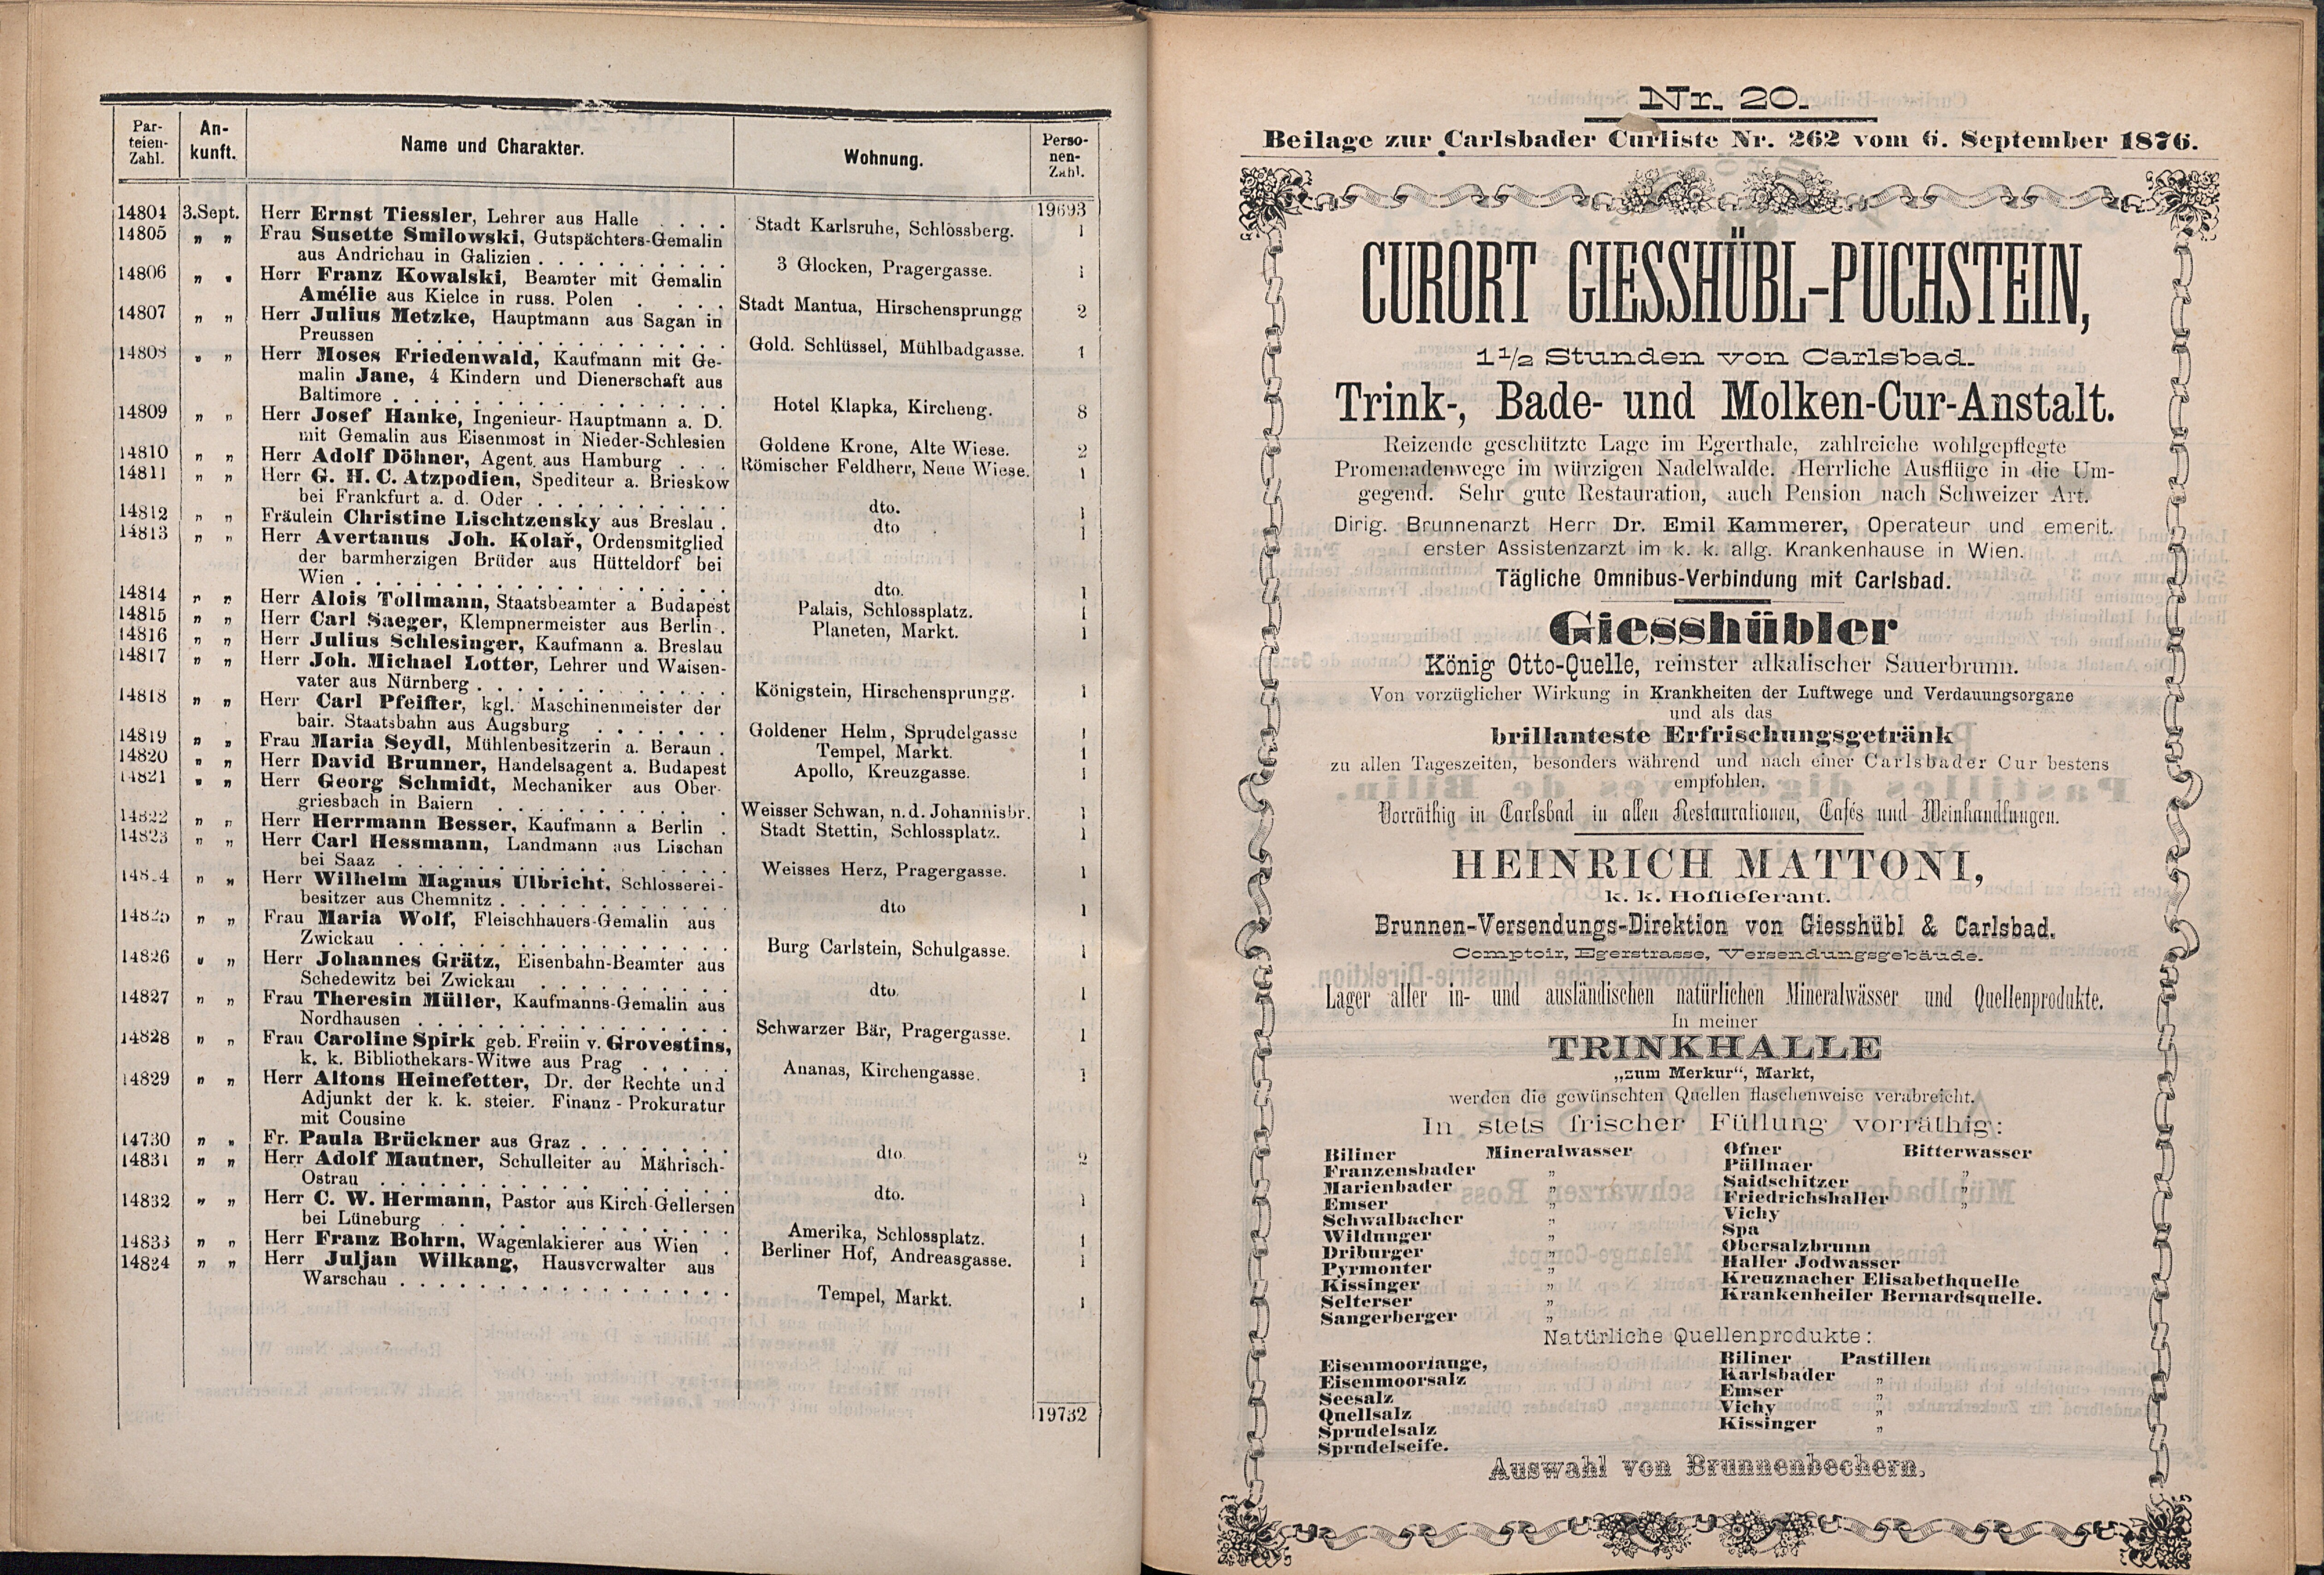 Par-
teien-
Zahl.
An-
kunft.
Name und Charakter.
Wohnung.
Perso-
nen-
Zahl.
19693
14804 3.Sept. Herr Ernst Tiessler, Lehrer aus Halle . . . . Stadt Karlsruhe, Schlossberg. 1
14805 „ „ Frau Susette Smilowski, Gutspächters-Gemalin
aus Andrichau in Galizien . . . . . . . . . . 3 Glocken, Pragergasse. 1
14806 „ „ Herr Franz Kowalski, Beamter mit Gemalin
Amélie aus Kielce in russ. Polen . . . . Stadt Mantua, Hirschensprungg 2
14807 „ „ Herr Julius Metzke, Hauptmann aus Sagan in
Preussen . . . . . . . . . . . . . . . . Gold. Schlüssel, Mühlbadgasse. 1
14808 „ „ Herr Moses Friedenwald, Kaufmann mit Ge-
malin Jane, 4 Kindern und Dienerschaft aus
Baltimore . . . . . . . . . . . . . . . . . Hotel Klapka, Kircheng. 8
14809 „ „ Herr Josef Hanke, Ingenieur-Hauptmann a. D.
mit Gemalin aus Eisenmost in Nieder-Schlesien Goldene Krone, Alte Wiese. 2
14810 „ „ Herr Adolf Döhner, Agent aus Hamburg . . . Römischer Feldherr, Neue Wiese. 1
14811 „ „ Herr G. H. C. Atzpodien, Spediteur a. Brieskow
bei Frankfurt a. d. Oder . . . . . . . . . . dto. 1
14812 „ „ Fräulein Christine Lischtzensky aus Breslau . dto 1
14813 „ „ Herr Avertanus Joh. Kolař, Ordensmitglied
der barmherzigen Brüder aus Hütteldorf bei
Wien . . . . . . . . . . . . . . . . . . . dto. 1
14814 „ „ Herr Alois Tollmann, Staatsbeamter a Budapest Palais, Schlossplatz. 1
14815 „ „ Herr Carl Saeger, Klempnermeister aus Berlin . Planeten, Markt. 1
14816 „ „ Herr Julius Schlesinger, Kaufmann a. Breslau
14817 „ „ Herr Joh. Michael Lotter, Lehrer und Waisen-
vater aus Nürnberg . . . . . . . . . . . . . Königstein, Hirschensprungg. 1
14818 „ „ Herr Carl Pfeiffer, kgl. Maschinenmeister der
bair. Staatsbahn aus Augsburg . . . . . . . Goldener Helm, Sprudelgasse 1
14819 „ „ Frau Maria Seydl, Mühlenbesitzerin a. Beraun . Tempel, Markt. 1
14820 „ „ Herr David Brunner, Handelsagent a. Budapest Apollo, Kreuzgasse. 1
14821 „ „ Herr Georg Schmidt, Mechaniker aus Ober-
griesbach in Baiern . . . . . . . . . . . . Weisser Schwan, n. d. Johannisbr. 1
14822 „ „ Herr Herrmann Besser, Kaufmann a Berlin . Stadt Stettin, Schlossplatz. 1
14823 „ „ Herr Carl Hessmann, Landmann aus Lischan
bei Saaz . . . . . . . . . . . . . . . . . Weisses Herz, Pragergasse. 1
148 4 „ „ Herr Wilhelm Magnus Ulbricht, Schlosserei-
besitzer aus Chemnitz . . . . . . . . . . . . dto 1
14825 „ „ Frau Maria Wolf, Fleischhauers-Gemalin aus
Zwickau . . . . . . . . . . . . . . . . . Burg Carlstein, Schulgasse. 1
14826 „ „ Herr Johannes Grätz, Eisenbahn-Beamter aus
Schedewitz bei Zwickau . . . . . . . . . . dto. 1
14827 „ „ Frau Theresin Müller, Kaufmanns-Gemalin aus
Nordhausen . . . . . . . . . . . . . . . . Schwarzer Bär, Pragergasse. 1
14828 „ „ Frau Caroline Spirk geb. Freiin v. Grovestins,
k. k. Bibliothekars-Witwe aus Prag . . . . . Ananas, Kirchengasse. 1
14829 „ „ Herr Alfons Heinefetter, Dr. der Rechte und
Adjunkt der k. k. steier. Finanz-Prokuratur
mit Cousine
14730 „ „ Fr. Paula Brückner aus Graz . . . . . . . . dto. 2
14831 „ „ Herr Adolf Mautner, Schulleiter au Mährisch-
Ostrau . . . . . . . . . . . . . . . . . . dto. 1
14832 „ „ Herr C. W. Hermann, Pastor aus Kirch-Gellersen
bei Lüneburg . . . . . . . . . . . . . . . Amerika, Schlossplatz. 1
14833 „ „ Herr Franz Bohrn, Wagenlakierer aus Wien . Berliner Hof, Andreasgasse. 1
14824 „ „ Herr Juljan Wilkang, Hausverwalter aus
Warschau . . . . . . . . . . . . . . . . . Tempel, Markt. 1
19732
Nr. 20.
Beilage zur Carlsbader Curliste Nr. 262 vom 6. September 1876.
CURORT GIESSHÜBL-PUCHSTEIN,
1 1/2 Stunden von Carlsbad.
Trink-, Bade- und Molken-Cur-Anstalt.
Reizende geschützte Lage im Egerthale, zahlreiche wohlgepflegte
Promenadenwege im würzigen Nadelwalde. Herrliche Ausflüge in die Um-
gegend. Sehr gute Restauration, auch Pension nach Schweizer Art.
Dirig. Brunnenarzt Herr Dr. Emil Kammerer, Operateur und emerit.
erster Assistenzarzt im k. k. allg. Krankenhause in Wien.
Tägliche Omnibus-Verbindung mit Carlsbad.
Giesshübler
König Otto-Quelle, reinster alkalischer Sauerbrunn.
Von vorzüglicher Wirkung in Krankheiten der Luftwege und Verdauungsorgane
und als das
brillanteste Erfrischungsgetränk
zu allen Tageszeiten, besonders während und nach einer Carlsbader Cur bestens
empfohlen.
Vorräthig in Carlsbad in allen Restaurationen, Cafés und Weinhandlungen.
HEINRICH MATTONI,
k. k. Hoflieferant.
Brunnen-Versendungs-Direktion von Giesshübl & Carlsbad.
Comptoir, Egerstrasse, Versendungsgebäude.
Lager aller in- und ausländischen natürlichen Mineralwässer und Quellenprodukte.
In meiner
TRINKHALLE
„zum Merkur“, Markt,
werden die gewünschten Quellen flaschenweise verabreicht.
In stets frischer Füllung vorräthig:
Biliner Mineralwasser
Franzensbader „
Marienbader „
Emser „
Schwalbacher „
Wildunger „
Driburger „
Pyrmonter „
Kissinger „
Selterser „
Sangerberger „
Ofner Bitterwasser
Püllnaer „
Saidschitzer „
Friedrichshaller „
Vichy
Spa
Obersalzbrunn
Haller Jodwasser
Kreuznacher Elisabethquelle
Krankenheiler Bernardsquelle.
Natürliche Quellenprodukte:
Eisenmoorlauge,
Eisenmoorsalz
Seesalz
Quellsalz
Sprudelsalz
Sprudelseife.
Biliner Pastillen
Karlsbader „
Emser „
Vichy „
Kissinger „
Auswahl von Brunnenbechern.